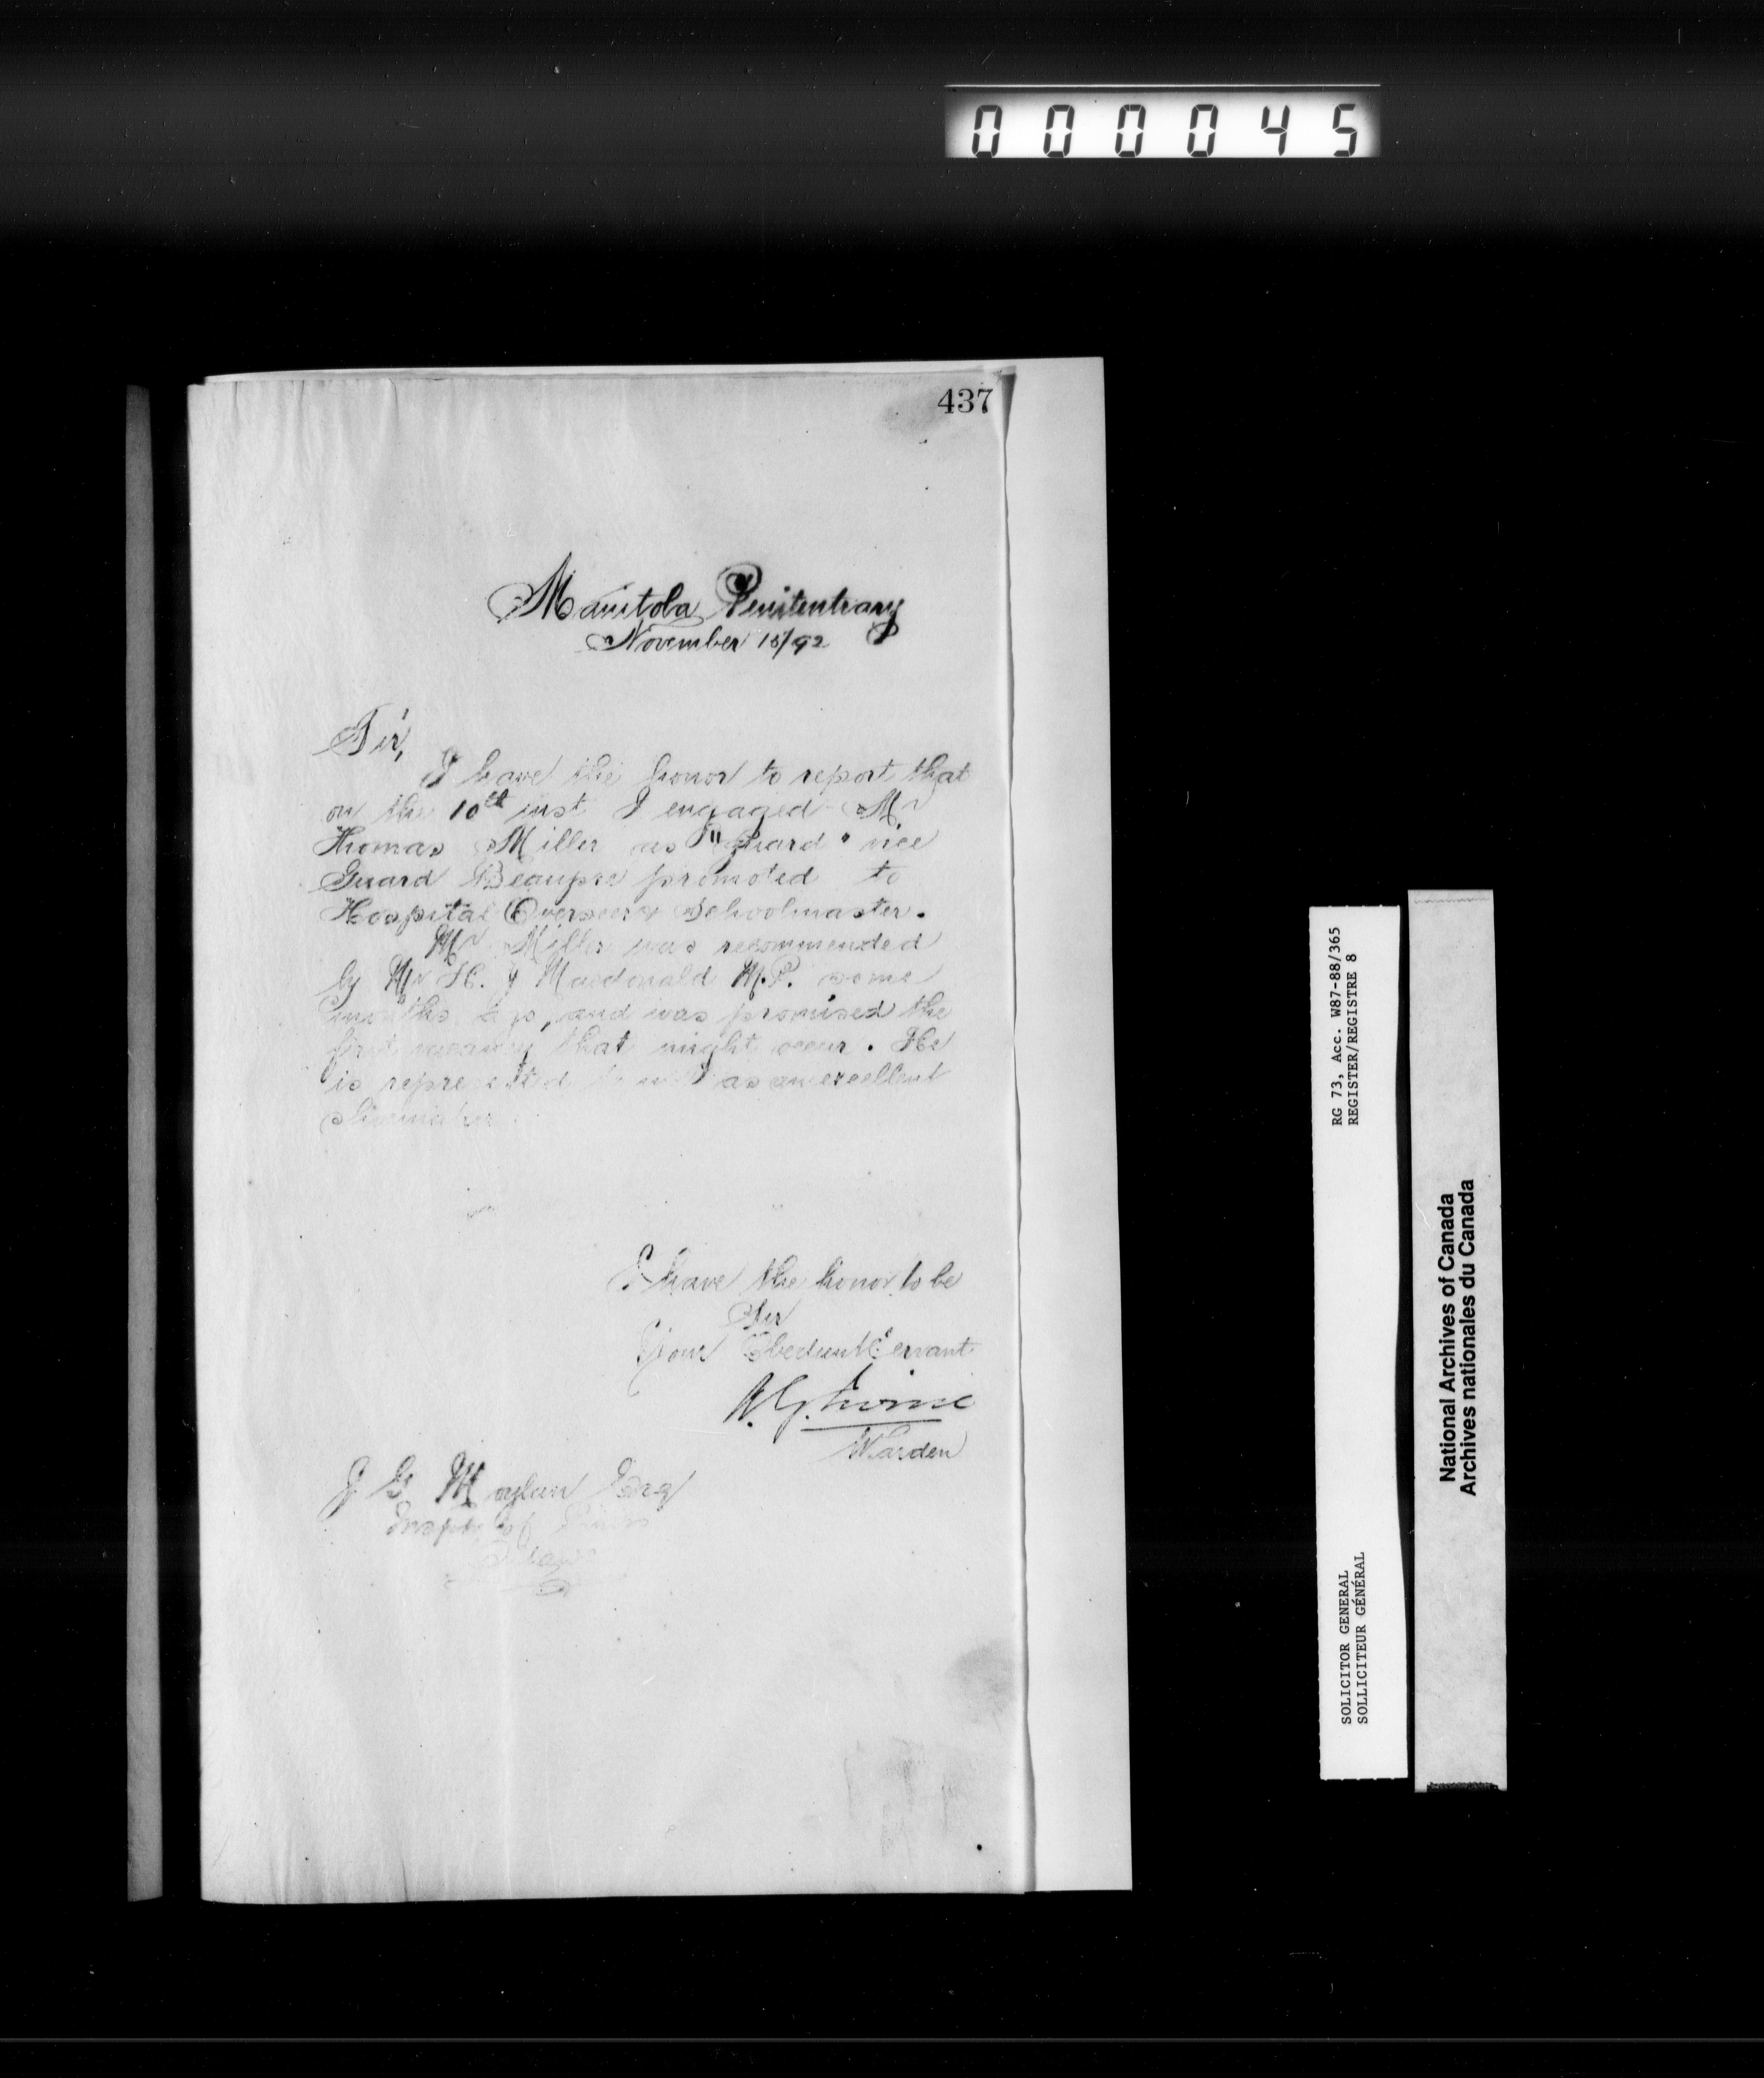 000045
437
Manitoba Penitentiary
November 15/92
Sir,
I have the honor to report that
on the 10th inst I engaged Mr
Thomas Miller as "guard" vice
Guard Beaupre promoted to
Hospital Overseer & Schoolmaster.
Mr Miller was recommended
by Mr H. J Macdonald M.P. some
months ago, and was promised the
first vacancy that might occur. He
is represented to me as an excellent
Shoemaker
I have the honor to be
Sir
Your Obedient Servant
A. G. Irvine
Warden
J G Moylan Esq
Inspr of
RG 73, Acc. W87-88/365
REGISTER/REGISTRE 8
SOLICITOR GENERAL
SOLLICITEUR GÉNÉRAL
National Archives of Canada
Archives nationales du Canada